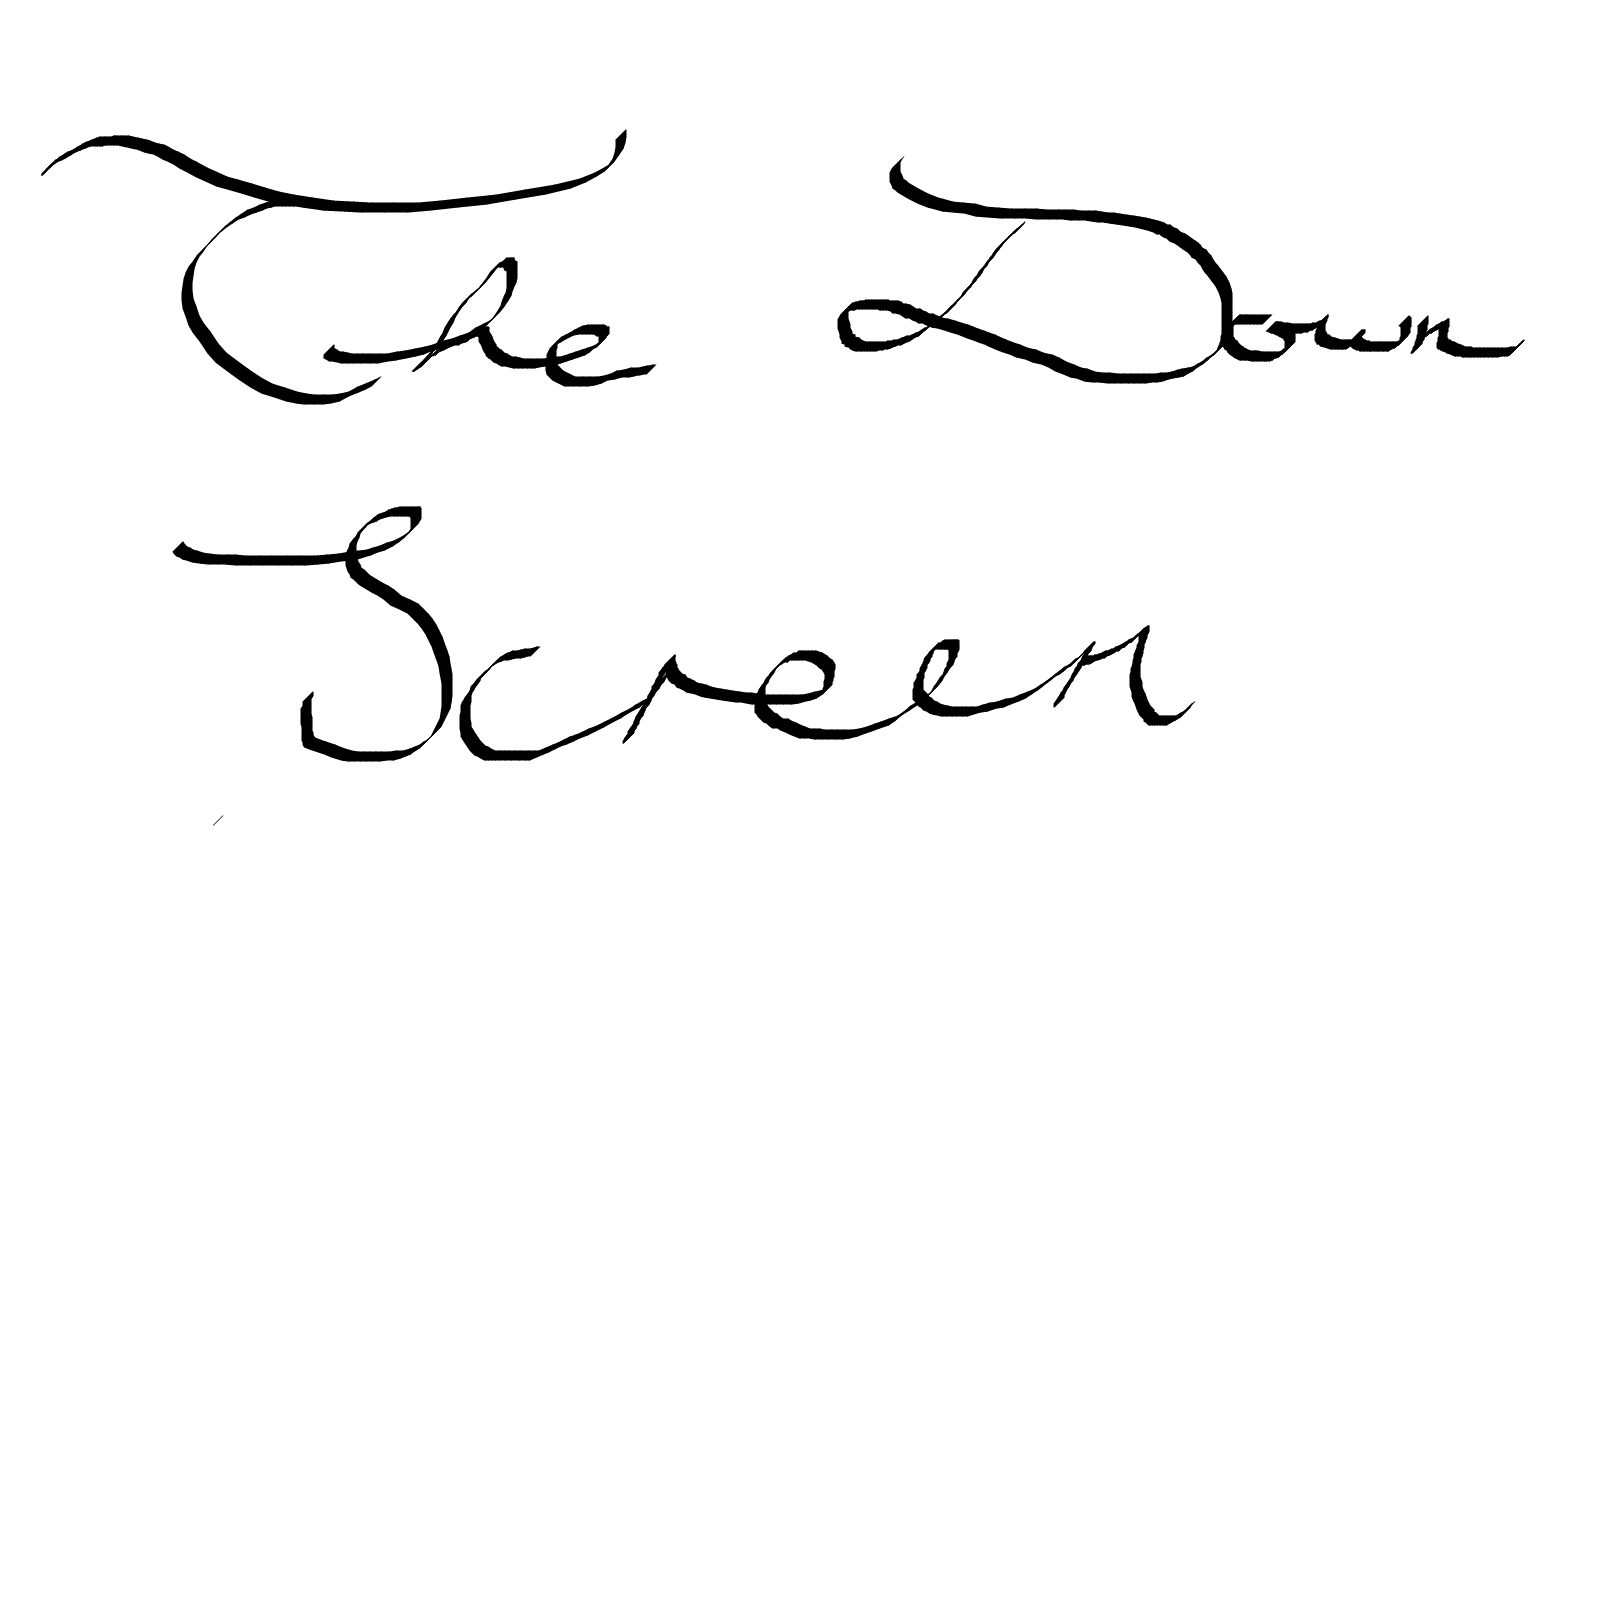 The Down
Screen